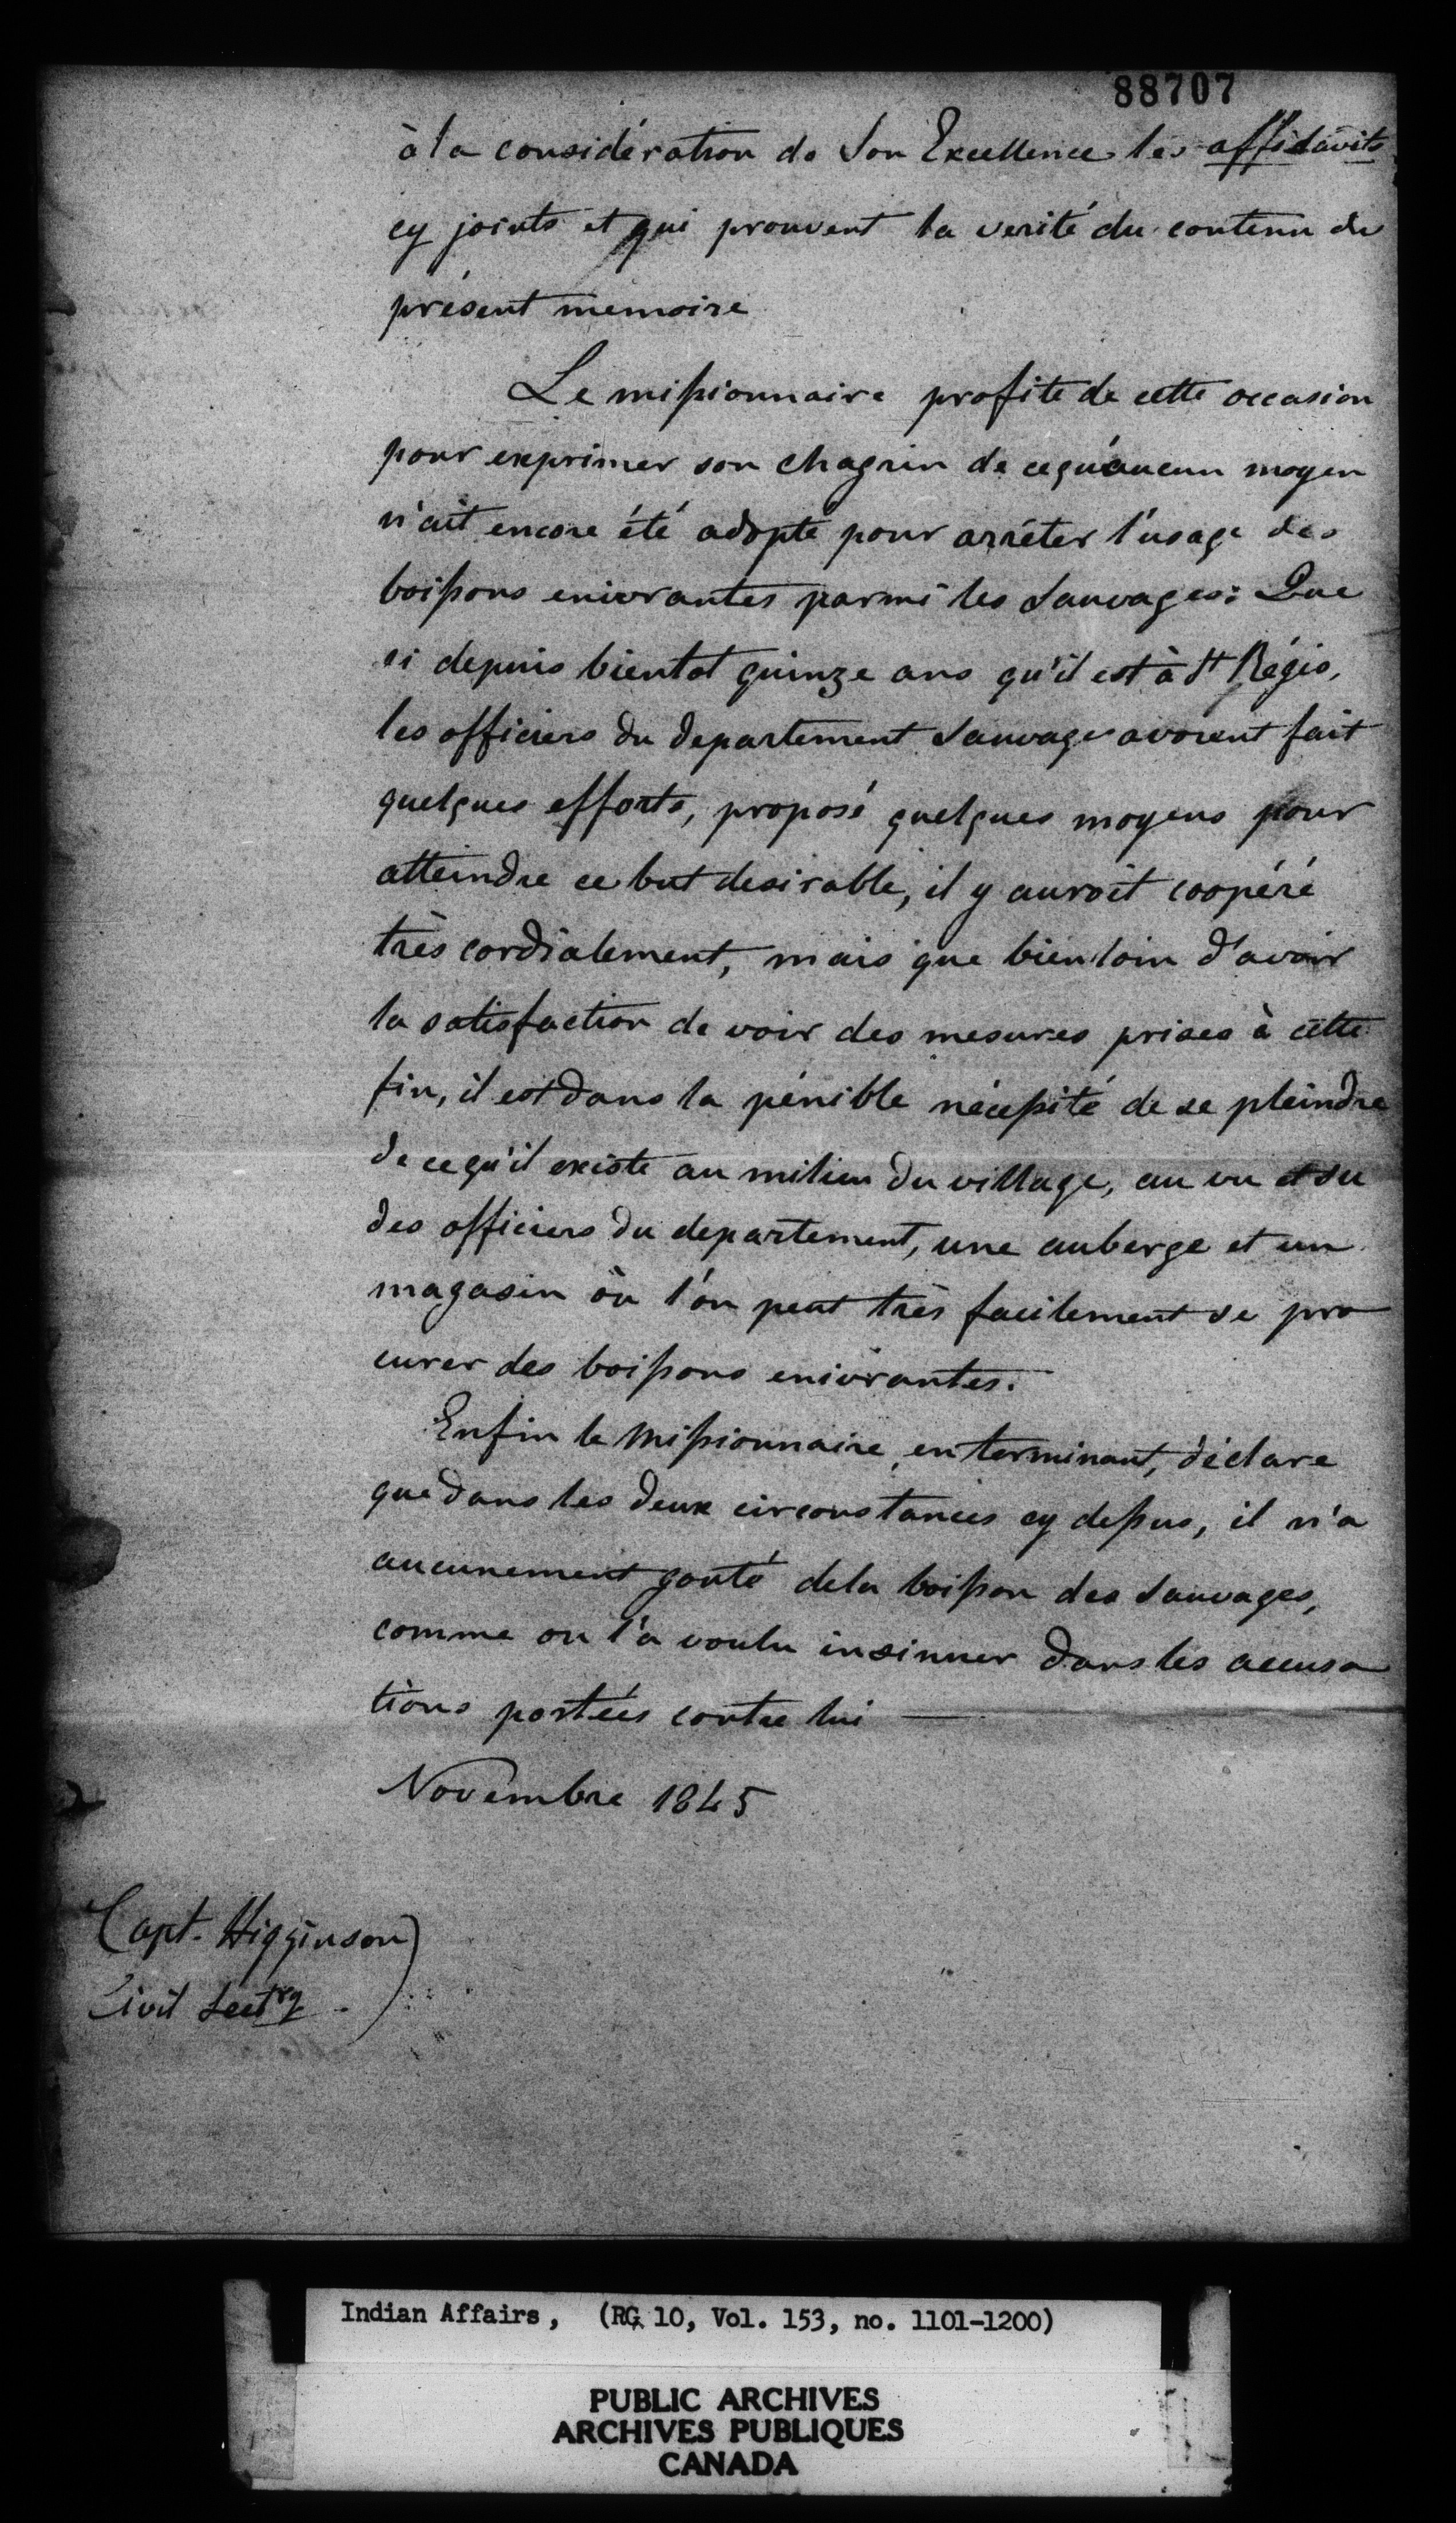 88707
à la considération de Son Excellence les affidavits
cy joints et qui prouvent la verité du contenu du
présent memoire
Le missionnaire profite de cette occasion
pour exprimer son chagrin de ce qu'aucun moyen
n'ait encore été adopté pour arrêter l'usage des
boissons enivrantes parmi les Sauvages: Que
si depuis bientot quinze ans qu'il est à St Régis,
les officiers du departement Sauvage avoient fait
quelques efforts, proposé quelques moyens pour
atteindre ce but desirable, il y auroit coopéré
très cordialement, mais que bien loin d'avoir
la satisfaction de voir des mesures prises à cette
fin, il est dans la pénible nécessité de se pleindre
de ce qu'il existe au milieu du village, au vu et su
des officiers du departement, une auberge et un
magasin où l'on peut très facilement se pro
curer des boissons enivrantes.
Enfin le Missionnaire, en terminant, déclare
que dans les deux circonstances cy dessus, il n'a
aucunement gouté de la boisson des Sauvages,
comme on l'a voulu insinuer dans les accusa
tions portées contre lui
Novembre 1845
Capt. Higginson
Civil Sectry
Indian Affairs, (RG 10, Vol. 153, no. 1101-1200)
PUBLIC ARCHIVES
ARCHIVES PUBLIQUES
CANADA